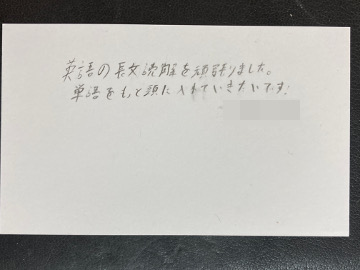 英語の長文読解を頑張りました。
単語をもっと頭に入れていきたいです!